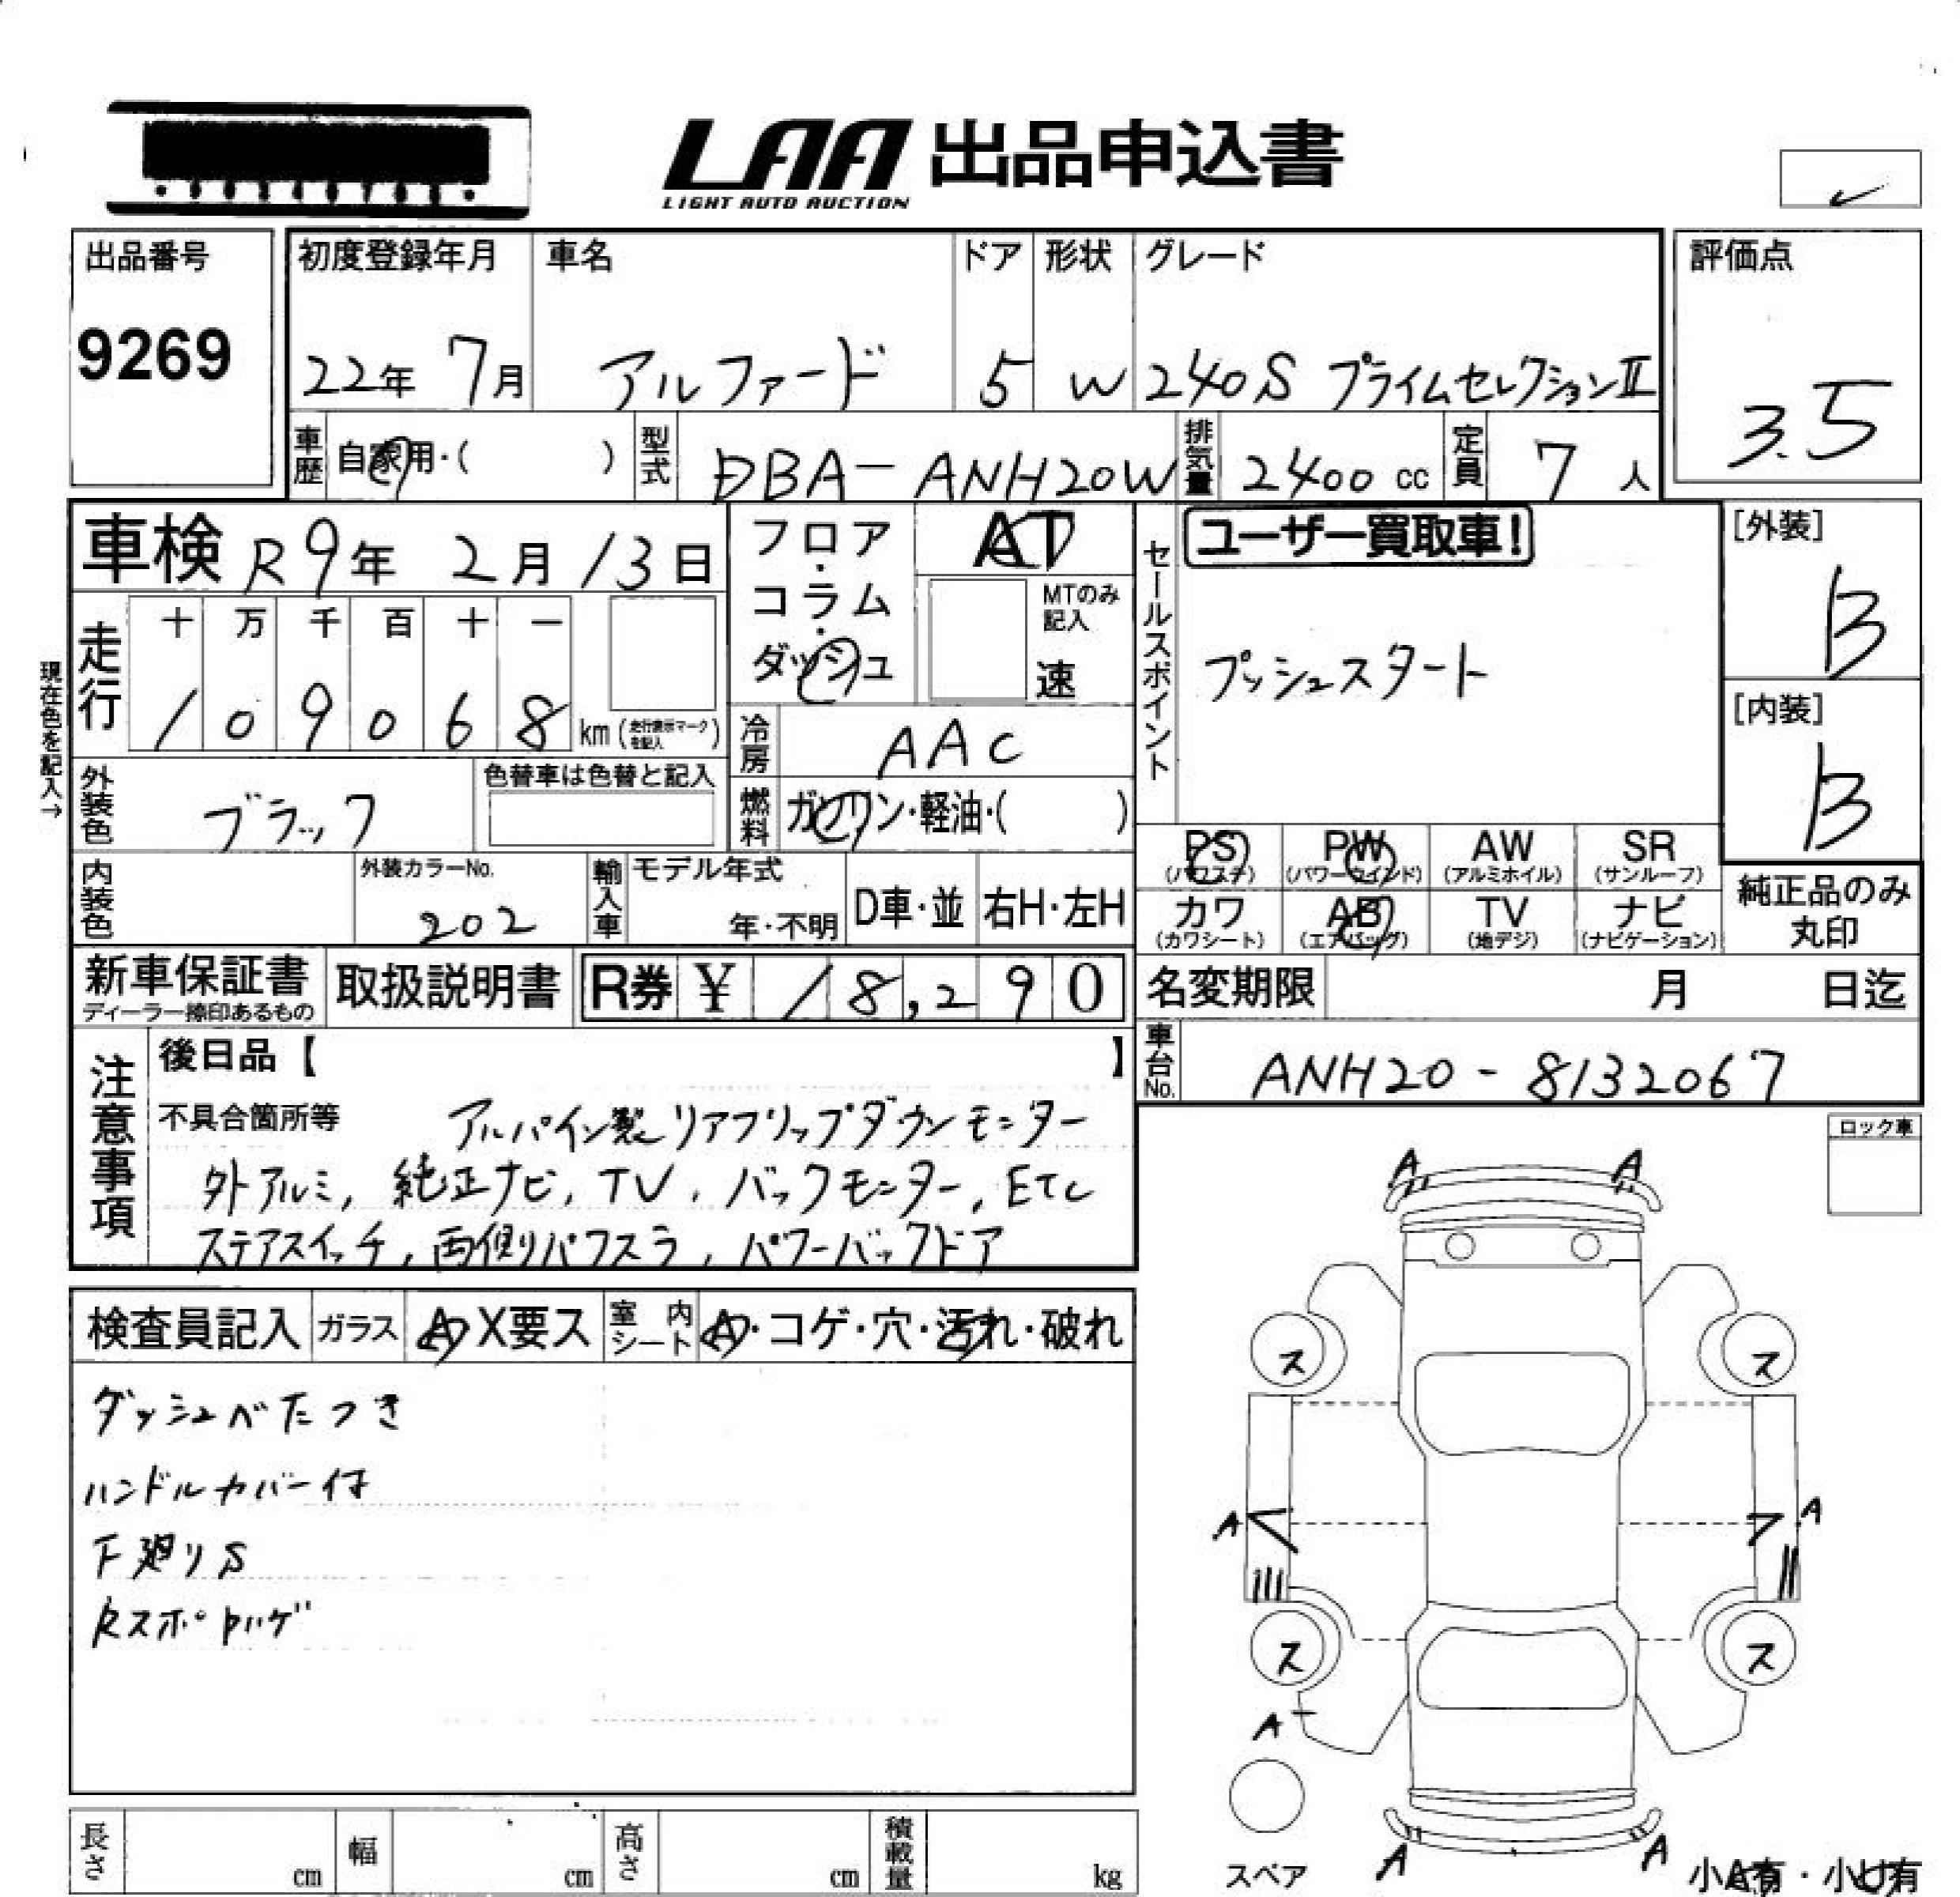 LAA 出品申込書
LIGHT AUTO AUCTION
出品番号
9269
初度登録年月
22年 7月
車名
アルファード
ドア
5
形状
W
グレード
240S プライムセレクションⅡ
評価点
3.5
車歴
自家用・( )
型式
DBA-ANH20W
排気量
2400 cc
定員
7 人
車検 R9年 2月 13日
現在色を記入→
走行
十 万 千 百 十 一
1 0 9 0 6 8 km (走行表示マークを記入)
フロア・コラム・ダッシュ
AT
MTのみ記入
速
冷房
AAC
燃料
ガソリン・軽油・( )
セールスポイント
ユーザー買取車!
プッシュスタート
[外装]
B
[内装]
B
外装色
ブラック
色替車は色替と記入
内装色
外装カラーNo.
202
輸入車
モデル年式
年・不明
D車・並
右H・左H
PS
(パワステ)
PW
(パワーウインド)
AW
(アルミホイル)
SR
(サンルーフ)
カワ
(カワシート)
AB
(エアバッグ)
TV
(地デジ)
ナビ
(ナビゲーション)
純正品のみ
丸印
新車保証書
ディーラー捺印あるもの
取扱説明書
R券 ¥ 18,290
名変期限 月 日迄
車台No.
ANH20-8132067
注意事項
後日品【 】
不具合箇所等 アルパイン製リアフリップダウンモニター
外アルミ, 純正ナビ, TV, バックモニター, ETC
ステアスイッチ, 両側パワスラ, パワーバックドア
ロック車
検査員記入
ガラス
A・X要ス
室内シート
A・コゲ・穴・汚れ・破れ
ダッシュベたつき
ハンドルカバー付
下廻りS
RスポDハゲ
A A
ス ス
A A
ス ス
A
A A
スペア
小A有・小U有
長さ cm
幅 cm
高さ cm
積載量 kg